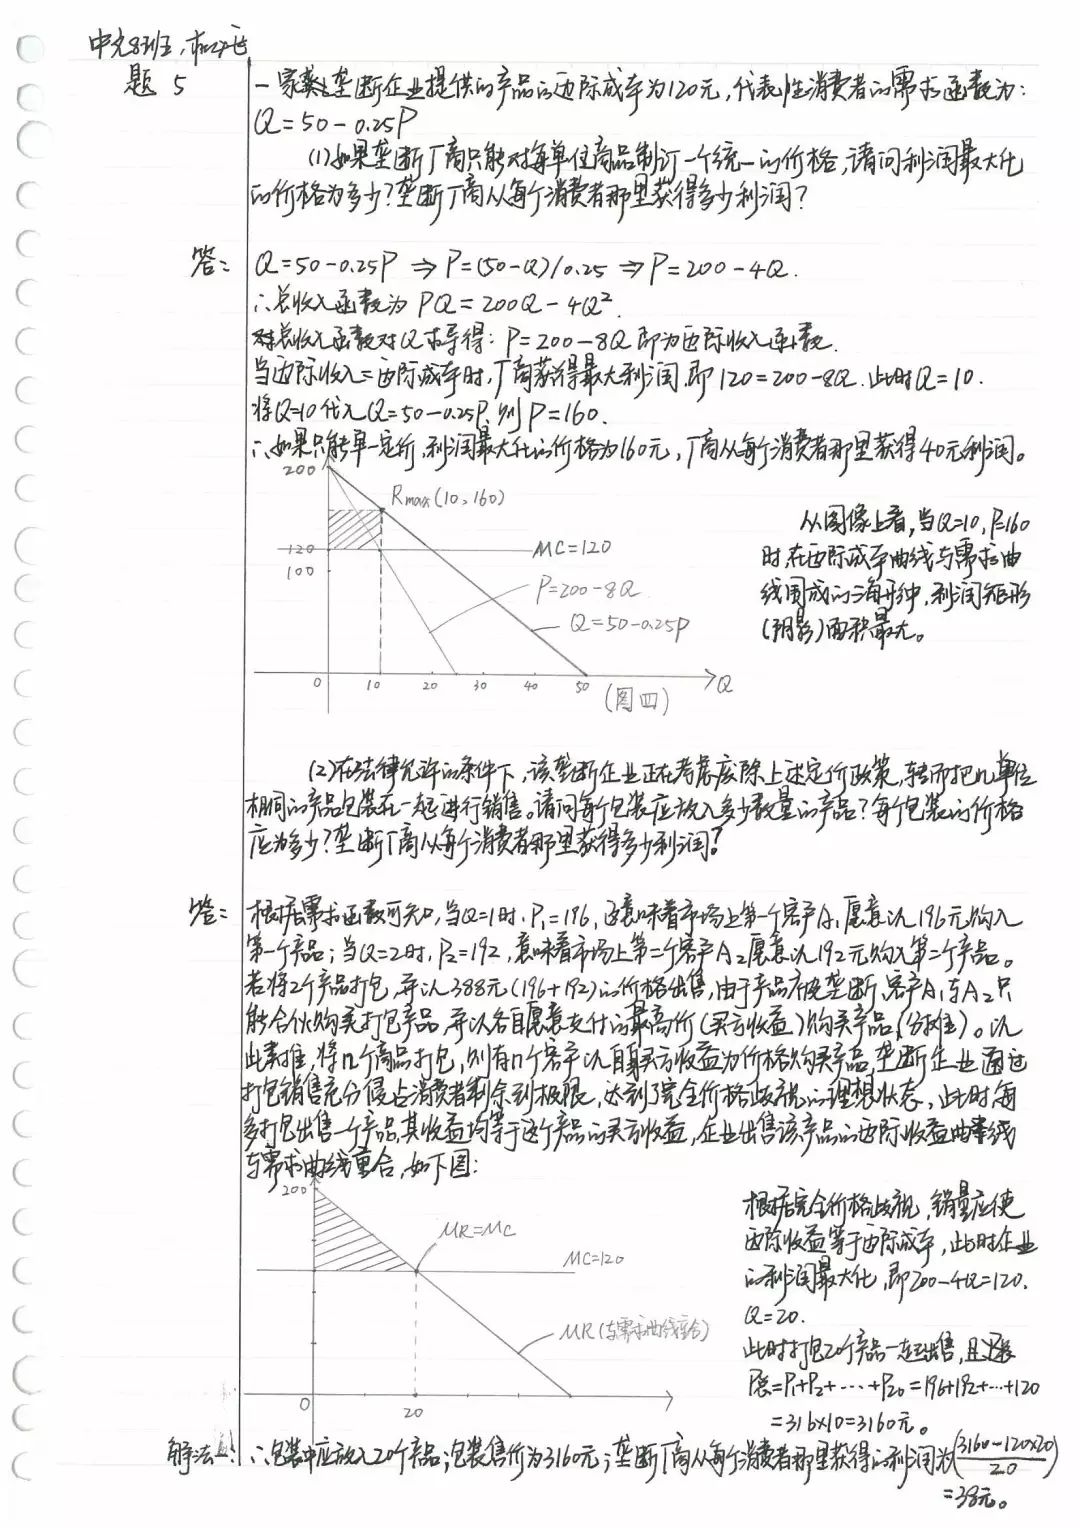 中尢8班
题5
一家垄断企业提供的产品的边际成本为120元,代表性消费者的需求函数为:
Q=50-0.25P
(1)如果垄断厂商只能对每单位商品制订一个统一的价格,请问利润最大化
的价格为多少?垄断厂商从每个消费者那里获得多少利润?
答: Q=50-0.25P ⇒ P=(50-Q)/0.25 ⇒ P=200-4Q.
∴总收入函数为 PQ=200Q-4Q².
对总收入函数对Q求导得: P=200-8Q 即为边际收入函数.
当边际收入=边际成本时,厂商获得最大利润,即120=200-8Q.此时Q=10.
将Q=10代入Q=50-0.25P,则P=160.
∴如果只能单一定价,利润最大化的价格为160元,厂商从每个消费者那里获得40元利润。
200
Rmax(10,160)
120
MC=120
100
P=200-8Q
Q=50-0.25P
0 10 20 30 40 50 Q
(图四)
从图像上看,当Q=10,P=160
时,在边际成本曲线与需求曲
线围成的三角形中,利润矩形
(阴影)面积最大。
(2)在法律允许的条件下,该垄断企业正在考虑废除上述定价政策,转而把几单位
相同的产品包装在一起进行销售。请问每个包装应放入多少数量的产品?每个包装的价格
应为多少?垄断厂商从每个消费者那里获得多少利润?
答: 根据需求函数可知,当Q=1时,P₁=196,这意味着市场上第一个客户A₁愿意以196元购入
第一个产品;当Q=2时,P₂=192,意味着市场上第二个客户A₂愿意以192元购入第二个产品。
若将2个产品打包,并以388元(196+192)的价格出售,由于产品被垄断,客户A₁与A₂只
能合伙购买打包产品,并以各自愿意支付的最高价(买方收益)购买产品(分摊)。以
此类推,将n个商品打包,则有n个客户以自身买方收益为价格购买产品,垄断企业通过
打包销售充分侵占消费者剩余到极限,达到了完全价格歧视的理想状态,此时,每
多打包出售一个产品,其收益均等于这个产品的买方收益,企业出售该产品的边际收益曲线
与需求曲线重合,如下图:
200
MR=MC
MC=120
MR(与需求曲线重合)
0 20
根据完全价格歧视,销量应使
边际收益等于边际成本,此时企业
的利润最大化,即200-4Q=120.
Q=20.
此时打包20个产品一起出售,且
P总=P₁+P₂+……+P₂₀=196+192+…+120
=316×10=3160元。
解法一: ∴包装中应放入20个产品;包装售价为3160元;垄断厂商从每个消费者那里获得的利润为(3160-120×20)/20
=38元。